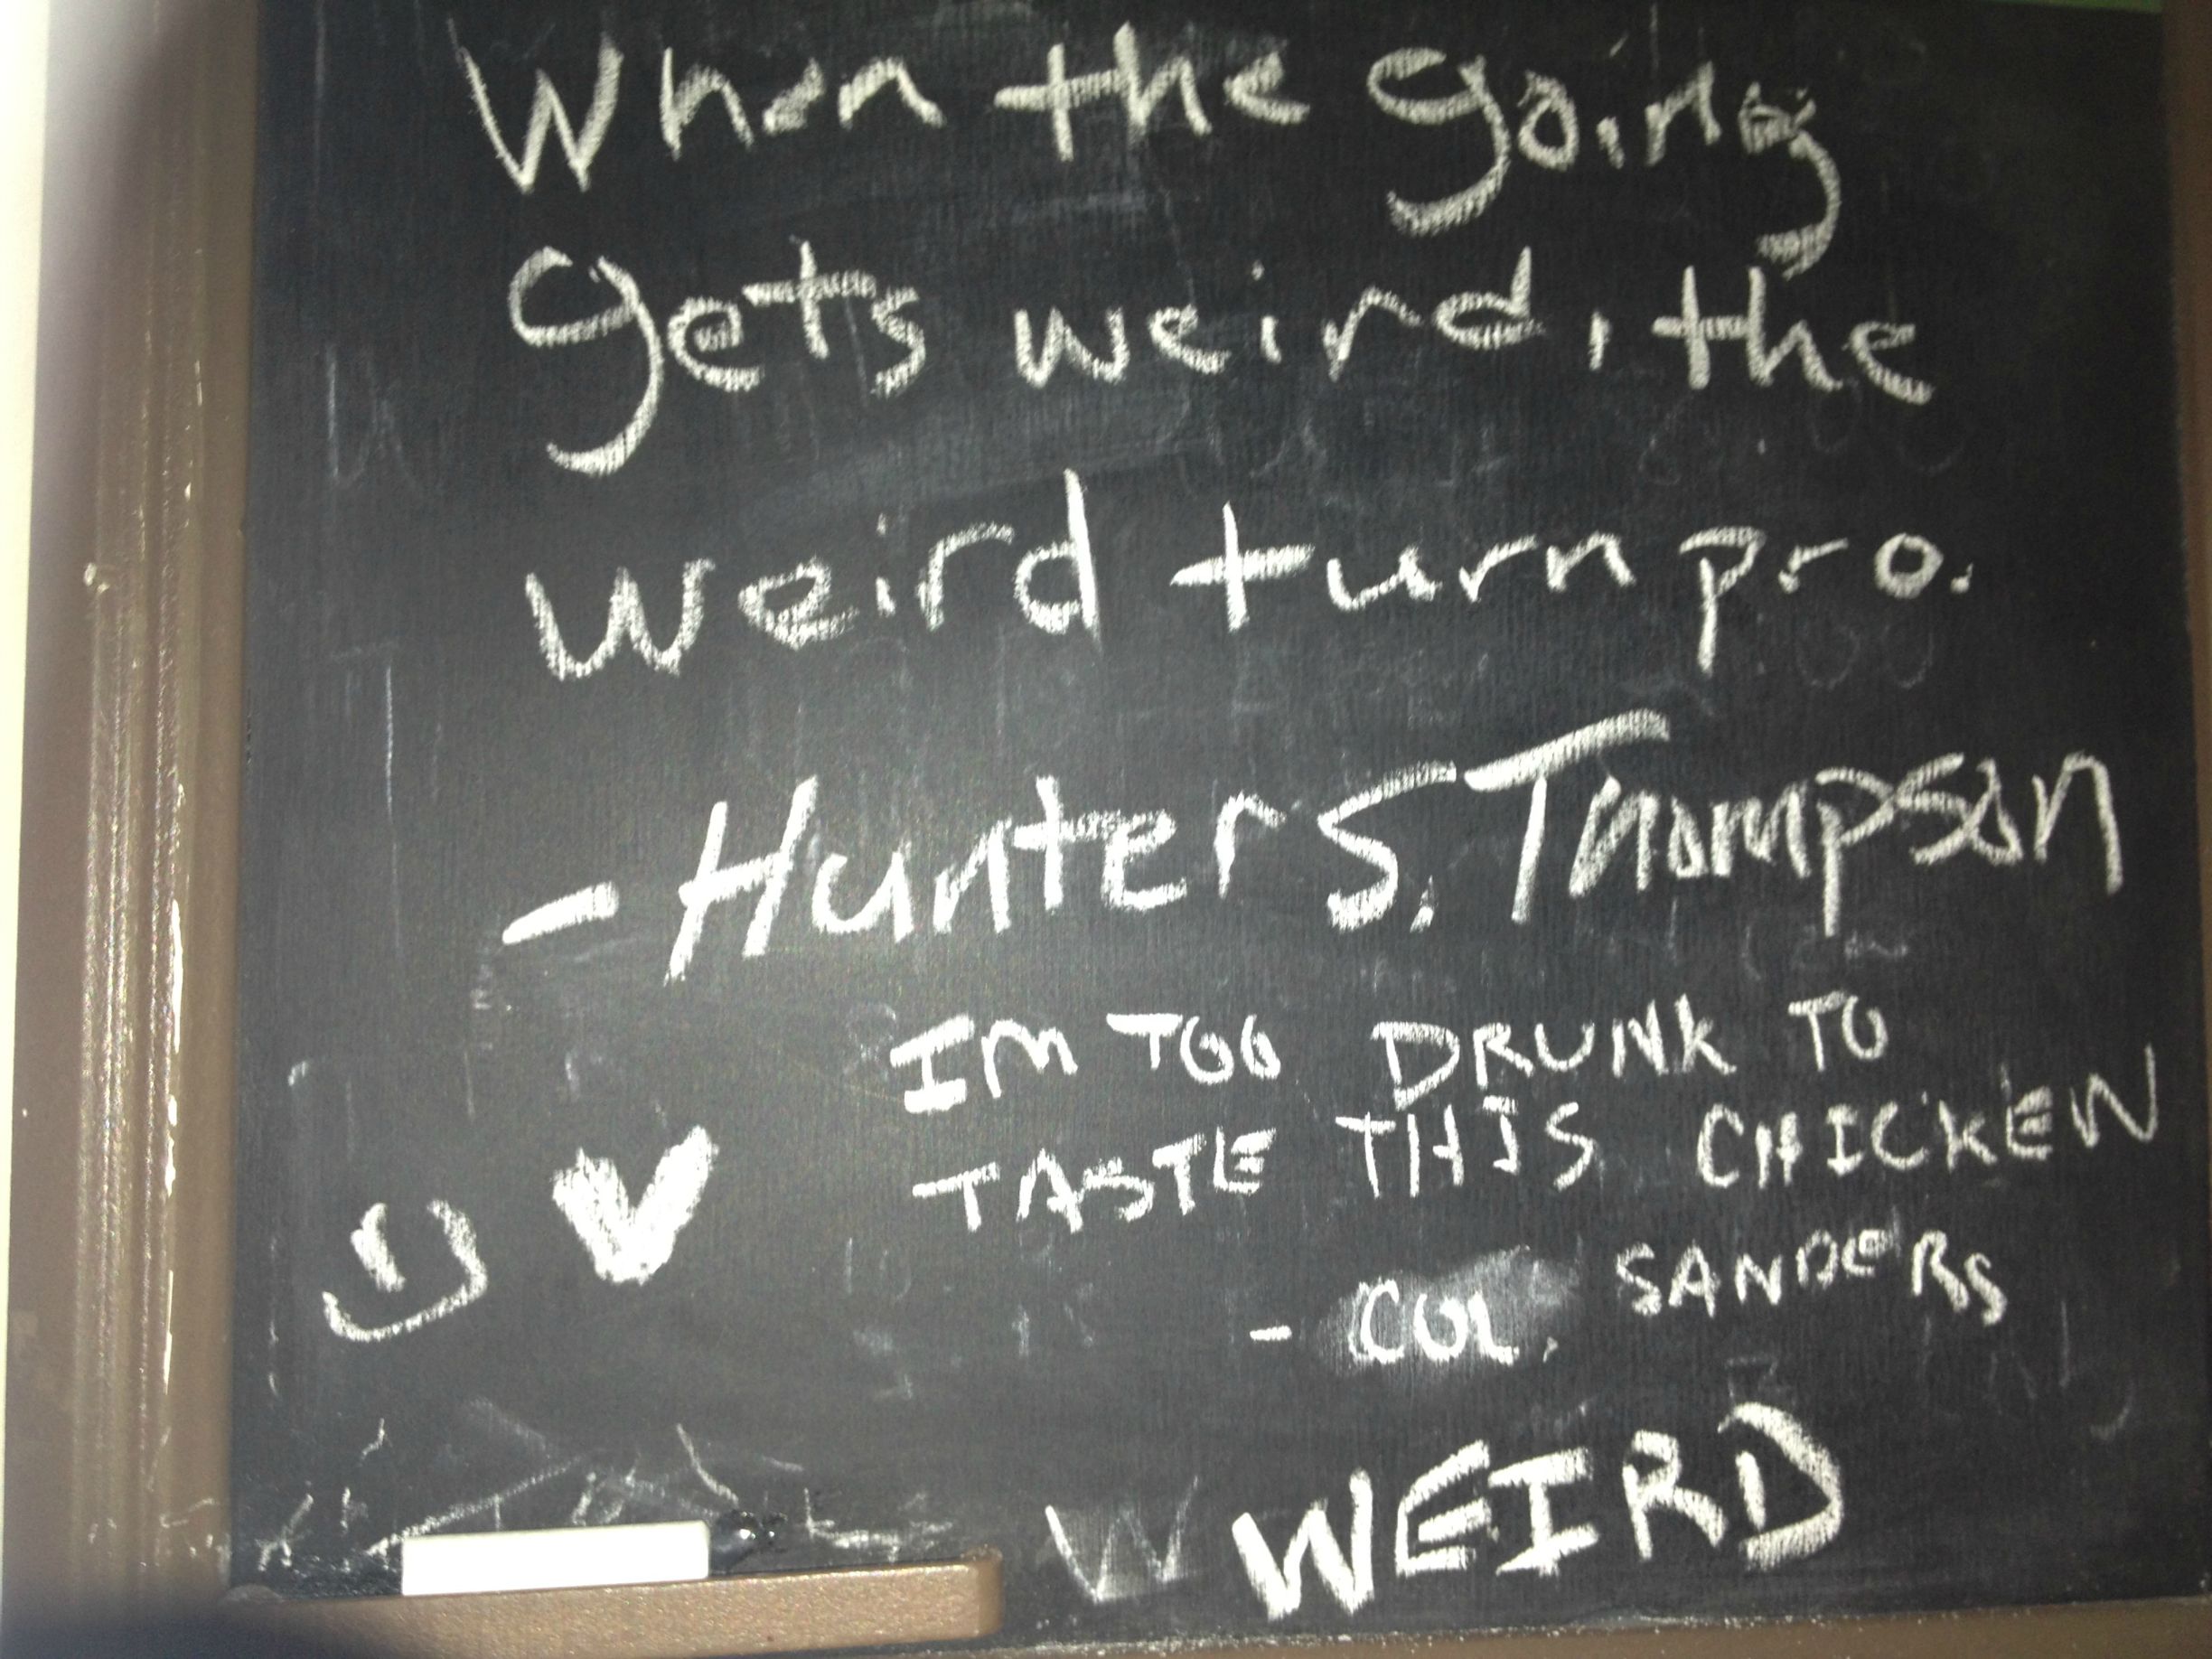 When the going
gets weird, the
weird turn pro.
- Hunter S. Thompson
IM TOO DRUNK TO
TASTE THIS CHICKEN
- COL. SANDERS
W WEIRD